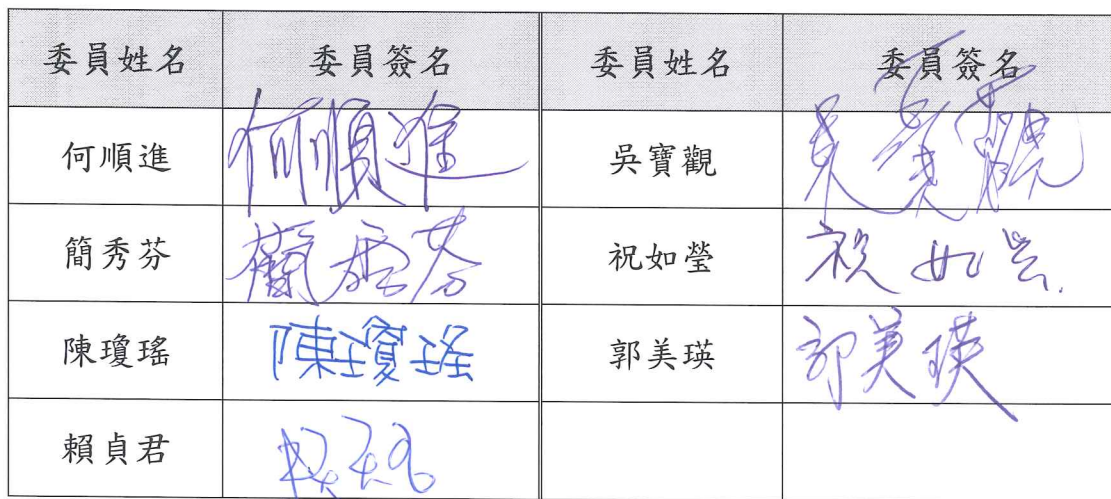 委員姓名 委員簽名 委員姓名 委員簽名
何順進 何順進 吳寶觀 吳寶觀
簡秀芬 簡秀芬 祝如瑩 祝如瑩
陳瓊瑤 陳瓊瑤 郭美瑛 郭美瑛
賴貞君 賴貞君